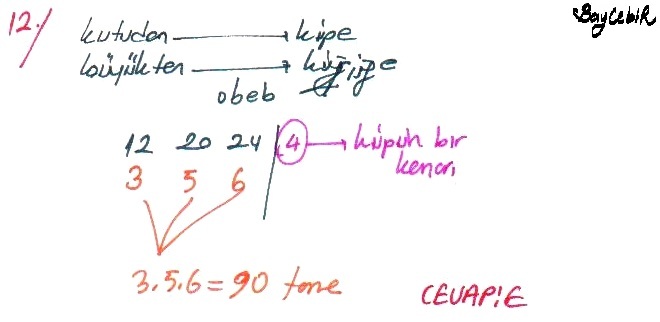 BayCebiR
12./
kutudan → küpe
büyükten → küçüğe
obeb
12 20 24 | 4 → küpün bir kenarı
3 5 6
3.5.6 = 90 tane
CEVAP:E